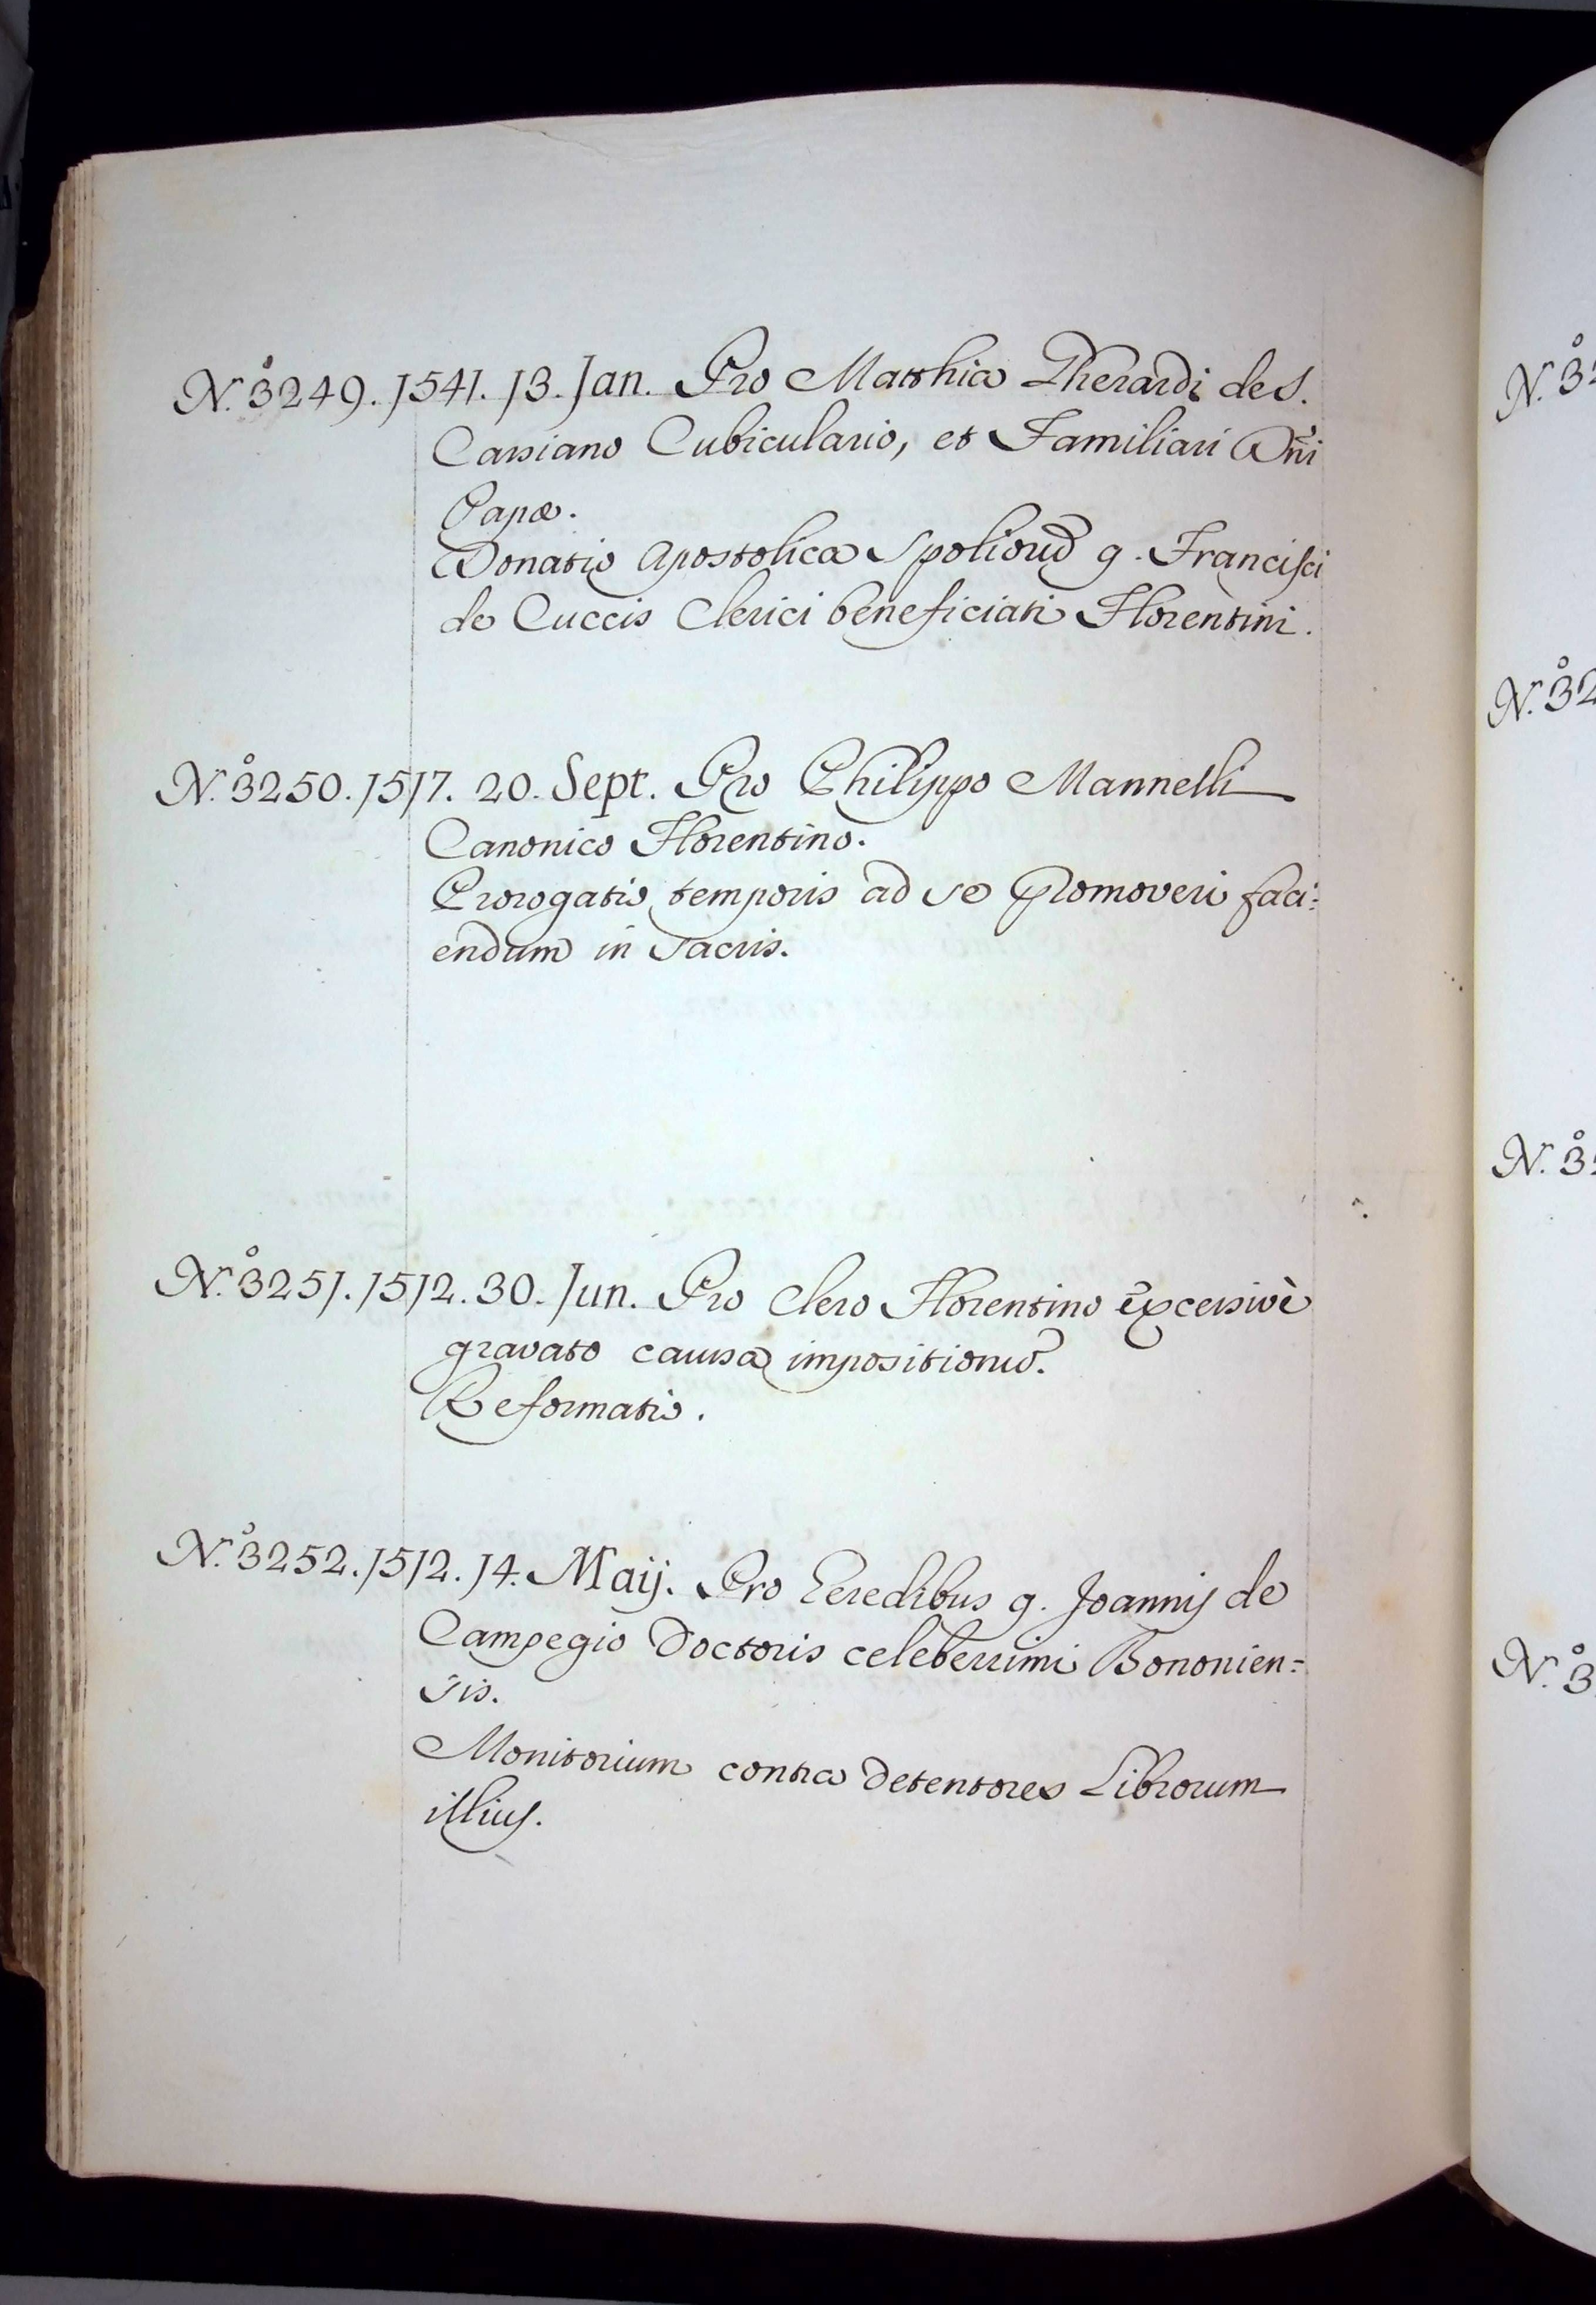 N.º 3249. 1541. 13. Jan. Pro Matthia Gherardi de S.
Cassiano Cubiculario, et Familiari Dñi
Papæ.
Donatio Apostolica Spolioru̅ q. Francisci
de Cuccis Clerici beneficiati Florentini.
N.º 3250. 1517. 20. Sept. Pro Philippo Mannelli
Canonico Florentino.
Prorogatio temporis ad se promoveri faci:
endum in sacris.
N.º 3251. 1512. 30. Jun. Pro Clero Florentino excessivè
gravato causa impositionu̅.
Reformatio.
N.º 3252. 1512. 14. Maij. Pro Eeredibus q. Joannis de
Campegio Doctoris celeberrimi Bononien=
sis.
Monitorium contra detentores Librorum
illius.
N.º 32
N.º 32
N.º 3
N.º 3